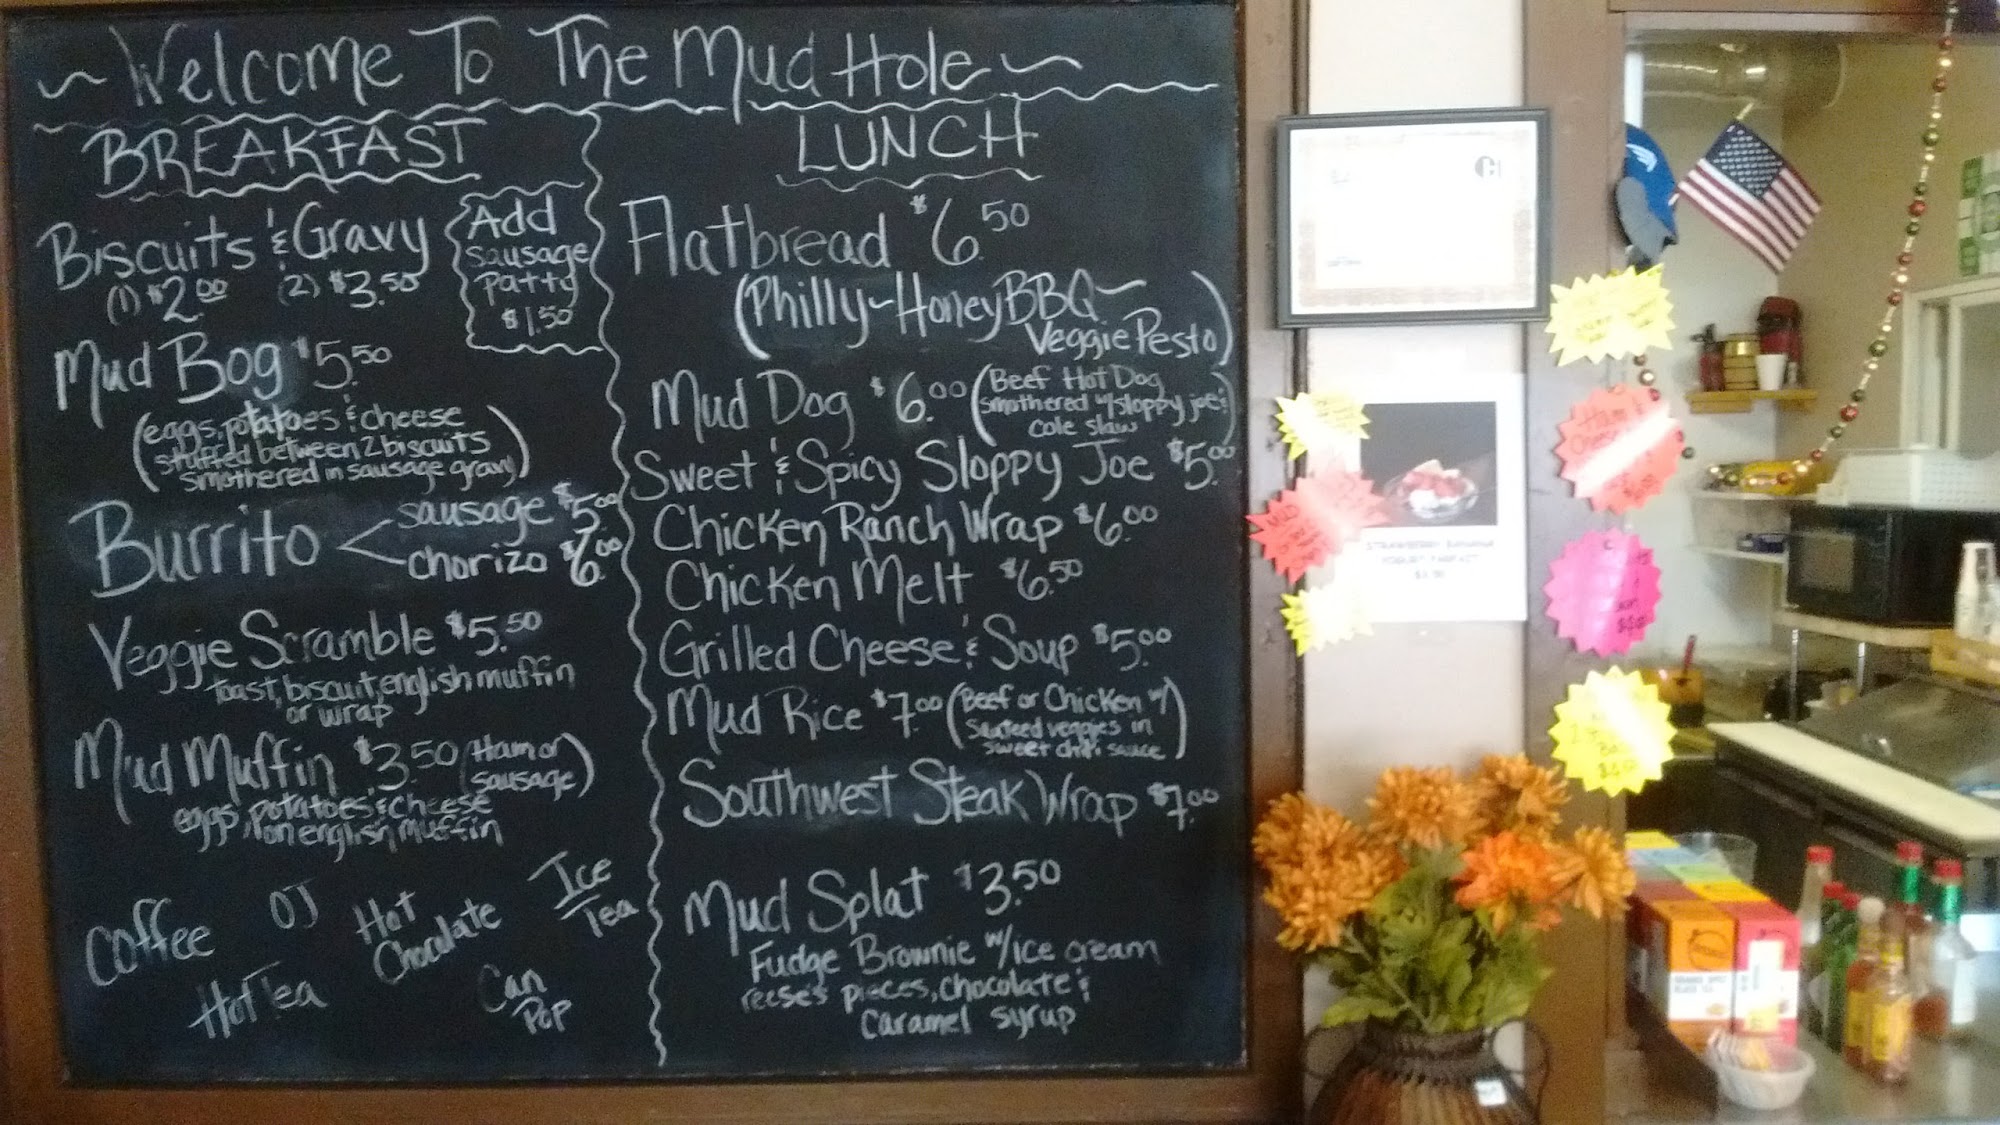 ~ Welcome To The Mud Hole ~
BREAKFAST
Biscuits & Gravy
(1) $2.00 (2) $3.50
Add
sausage
patty
$1.50
Mud Bog $5.50
(eggs, potatoes & cheese
stuffed between 2 biscuits
smothered in sausage gravy)
Burrito < sausage $5.00
chorizo $6.00
Veggie Scramble $5.50
toast, biscuit, english muffin
or wrap
Mud Muffin $3.50 (Ham or
sausage)
eggs, potatoes, & cheese
on english muffin
Coffee
OJ
Hot
Chocolate
Ice
Tea
Hot Tea
Can
Pop
LUNCH
Flatbread $6.50
(Philly~Honey BBQ~
Veggie Pesto)
Mud Dog $6.00 (Beef Hot Dog
smothered w/sloppy joe &
cole slaw
Sweet & Spicy Sloppy Joe $5.00
Chicken Ranch Wrap $6.00
Chicken Melt $6.50
Grilled Cheese & Soup $5.00
Mud Rice $7.00 (Beef or Chicken w/
Sauteed veggies in
sweet chili sauce)
Southwest Steak Wrap $7.00
Mud Splat $3.50
Fudge Brownie w/ice cream
reese's pieces, chocolate &
caramel syrup
STRAWBERRY BANANA
YOGURT PARFAIT
Ham &
Cheese